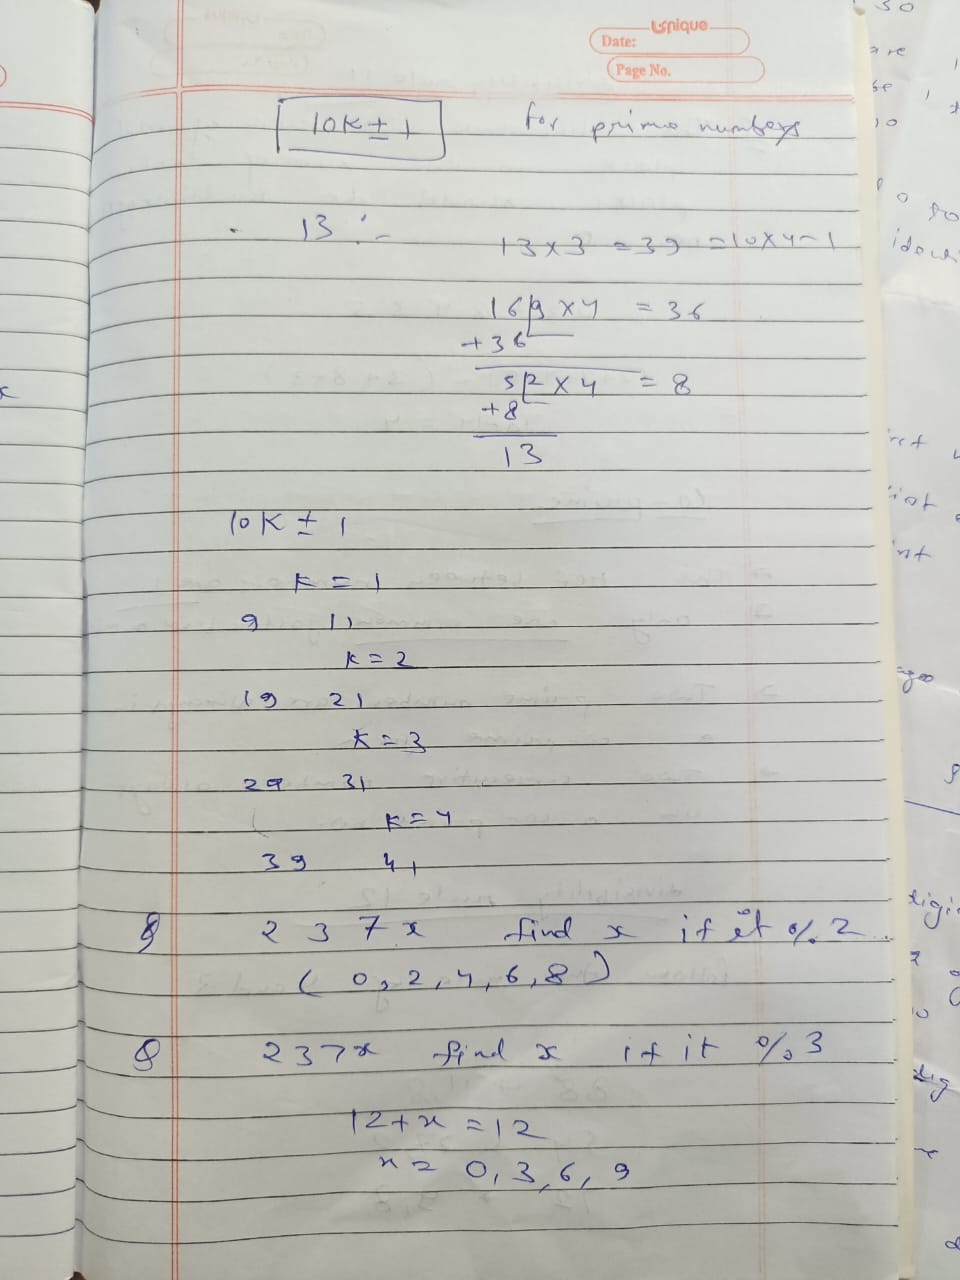 unique
Date:
Page No.
10K ± 1 for prime numbers
13 :- 13 x 3 = 39 = 10 x 4 - 1
169 x 4 = 36
+36
52 x 4 = 8
+8
13
10K ± 1
K = 1
9 11
K = 2
19 21
K = 3
29 31
K = 4
39 41
Q 2 3 7 x find x if it % 2
( 0, 2, 4, 6, 8 )
Q 237x find x if it % 3
12 + x = 12
x = 0, 3, 6, 9